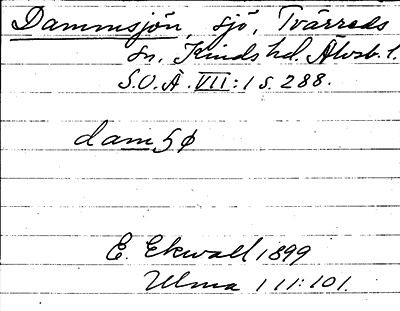 Dammsjön, sjö, Tvärreds
sn, Kinds hd. Älvsb. l.
S.O.Ä. VII:1 s. 288.
dam
E. Ekwall 1899
Ulma 111:101